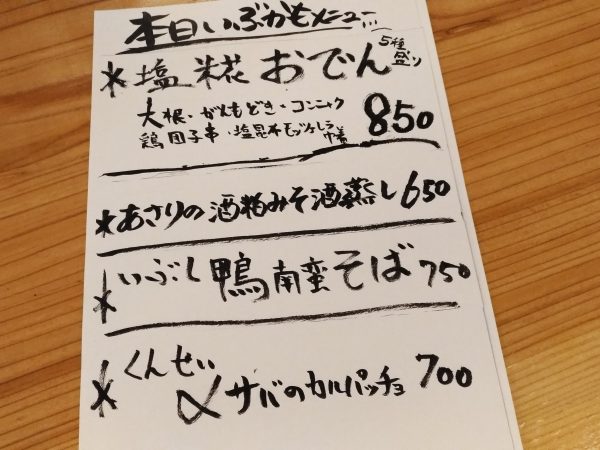 本日いぶかもメニュー
*塩糀おでん 5種盛り
大根・がんもどき・コンニャク
鶏団子串・塩昆布モッツァレラ巾着 850
*あさりの酒粕みそ酒蒸し 650
*いぶし鴨南蛮そば 750
*くんせい〆サバのカルパッチョ 700